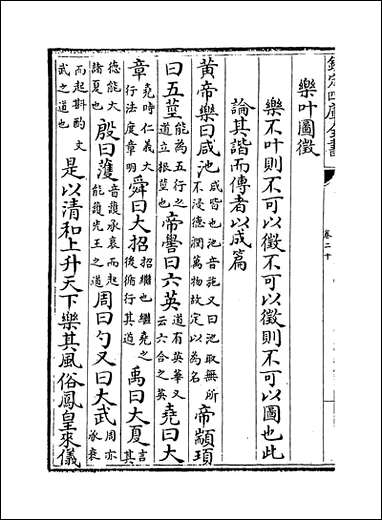 欽定四庫全書
卷二十
樂叶圖徵
樂不叶則不可以徵不可以徵則不可以圖也此
論其諧而傳者以成篇
黃帝樂曰咸池咸皆也池音施又曰池取無所不浸德潤萬物故定以為名帝顓頊
曰五莖能為五行之道立根莖也帝嚳曰六英道有英華又云六合之英堯曰大
章堯時仁義大行法度章明舜曰大招招繼也繼堯之後循行其道禹曰大夏其言
德能大諸夏也殷曰頀音頀承衰而起能頀先王之道周曰勺又曰大武周亦承衰
而起斟酌文武之道也是以清和上升天下樂其風俗鳳皇來儀